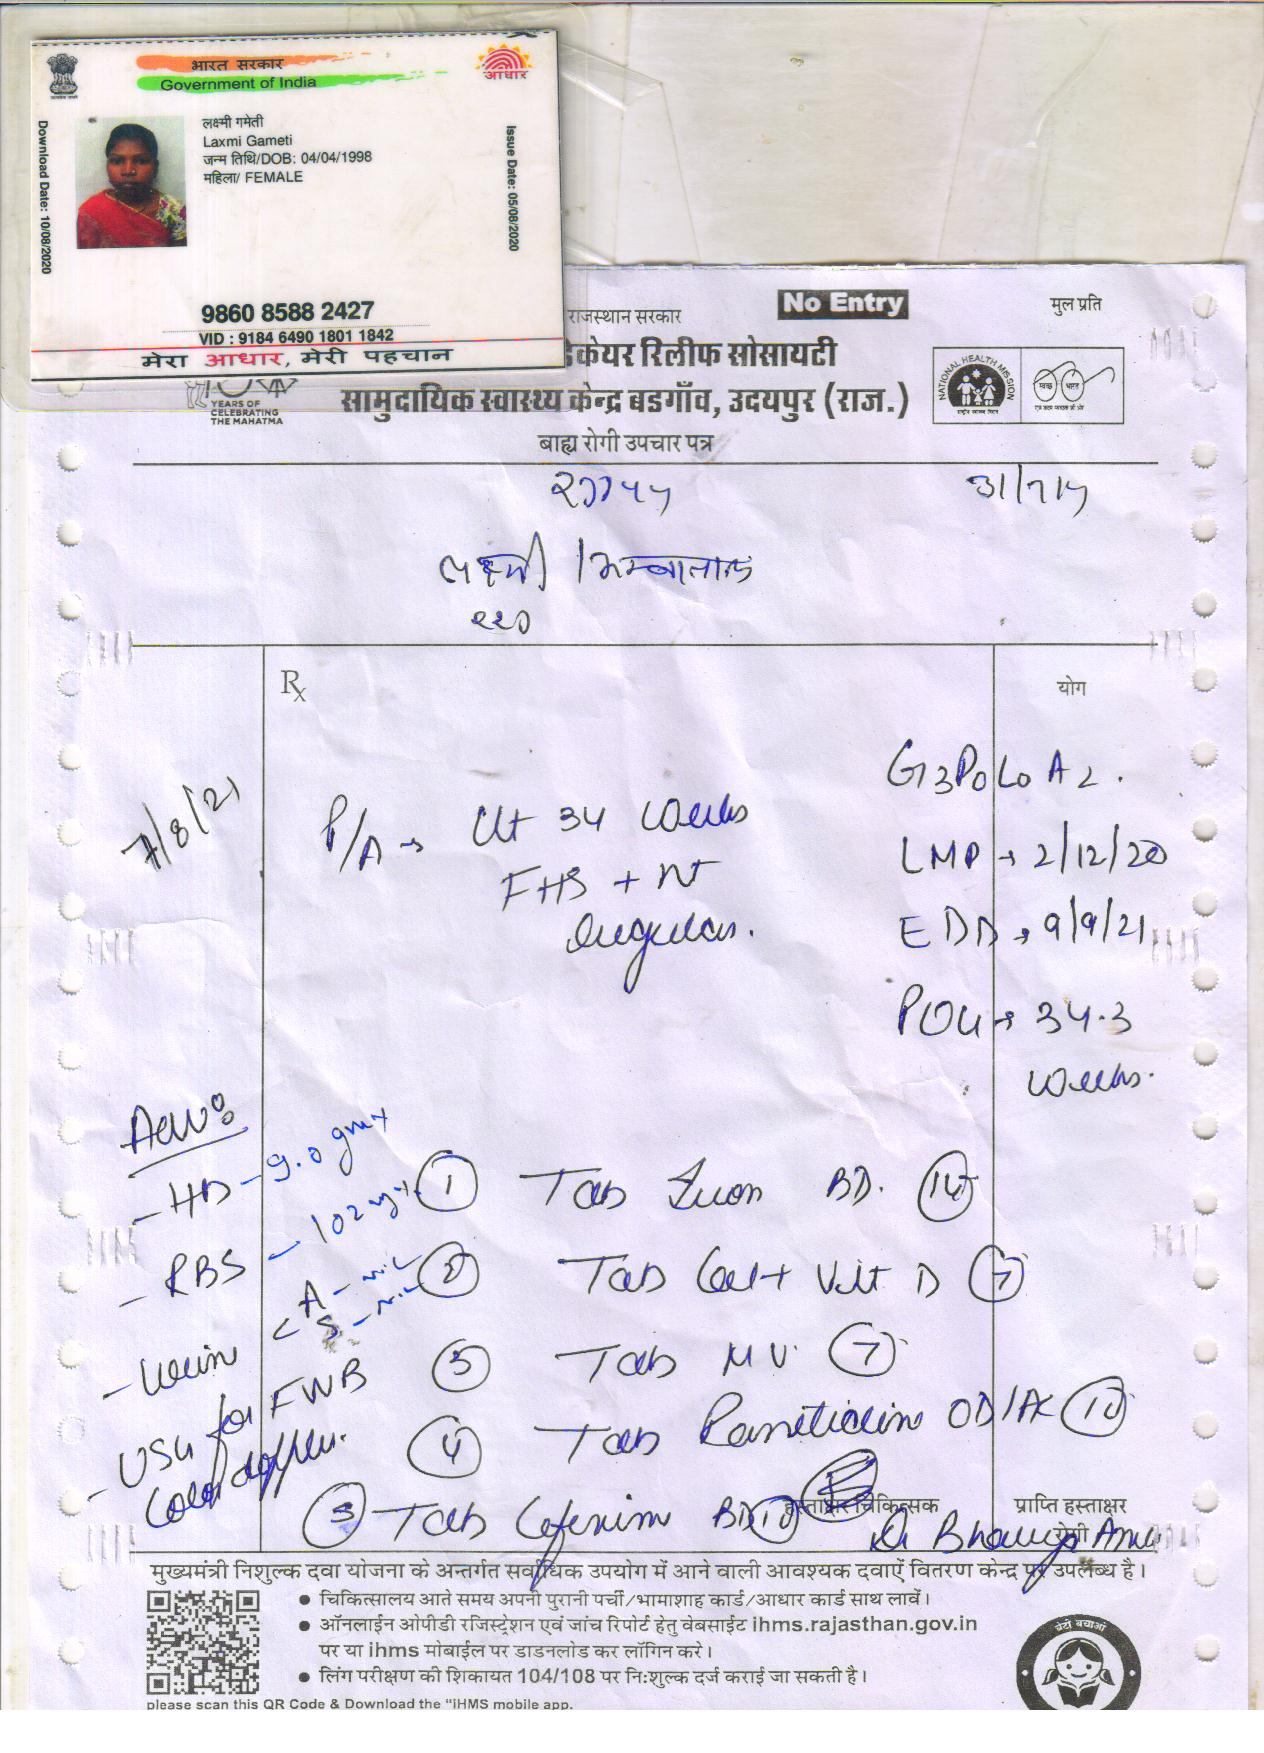 भारत सरकार
Government of India
आधार
Download Date: 10/08/2020
लक्ष्मी गमेती
Laxmi Gameti
जन्म तिथि/DOB: 04/04/1998
महिला/ FEMALE
Issue Date: 05/08/2020
9860 8588 2427
VID : 9184 6490 1801 1842
मेरा आधार, मेरी पहचान
राजस्थान सरकार
No Entry
मुल प्रति
डिकेयर रिलीफ सोसायटी
YEARS OF
CELEBRATING
THE MAHATMA
सामुदायिक स्वास्थ्य केन्द्र बडगाँव, उदयपुर (राज.)
NATIONAL HEALTH MISSION
स्वच्छ भारत
बाह्य रोगी उपचार पत्र
लक्ष्मी / अम्बालाल
Rx
योग
7/8/21
P/A → Ut 34 weeks
FHS + nt
regular.
G3P0L0A2.
LMP → 2/12/20
EDD → 9/9/21
POG → 34.3
weeks.
Adv:
- HB - 9.0 gm
- RBS - 102
- Urine < A - nil
S - nil
- USG for FWB
Color doppler.
1 Tab Iron BD. 14
2 Tab Cal + Vit D 7
3 Tab MV. 7
4 Tab Ranitidine OD/AC 10
5 Tab Cefixime BD 10
हस्ताक्षर चिकित्सक
प्राप्ति हस्ताक्षर
रोगी
मुख्यमंत्री निशुल्क दवा योजना के अन्तर्गत सर्वाधिक उपयोग में आने वाली आवश्यक दवाऐं वितरण केन्द्र पर उपलब्ध है।
● चिकित्सालय आते समय अपनी पुरानी पर्ची/भामाशाह कार्ड/आधार कार्ड साथ लावें।
● ऑनलाईन ओपीडी रजिस्ट्रेशन एवं जांच रिपोर्ट हेतु वेबसाईट ihms.rajasthan.gov.in
पर या ihms मोबाईल पर डाडनलोड कर लॉगिन करे।
● लिंग परीक्षण की शिकायत 104/108 पर नि:शुल्क दर्ज कराई जा सकती है।
please scan this QR Code & Download the "iHMS mobile app.
बेटी बचाओ